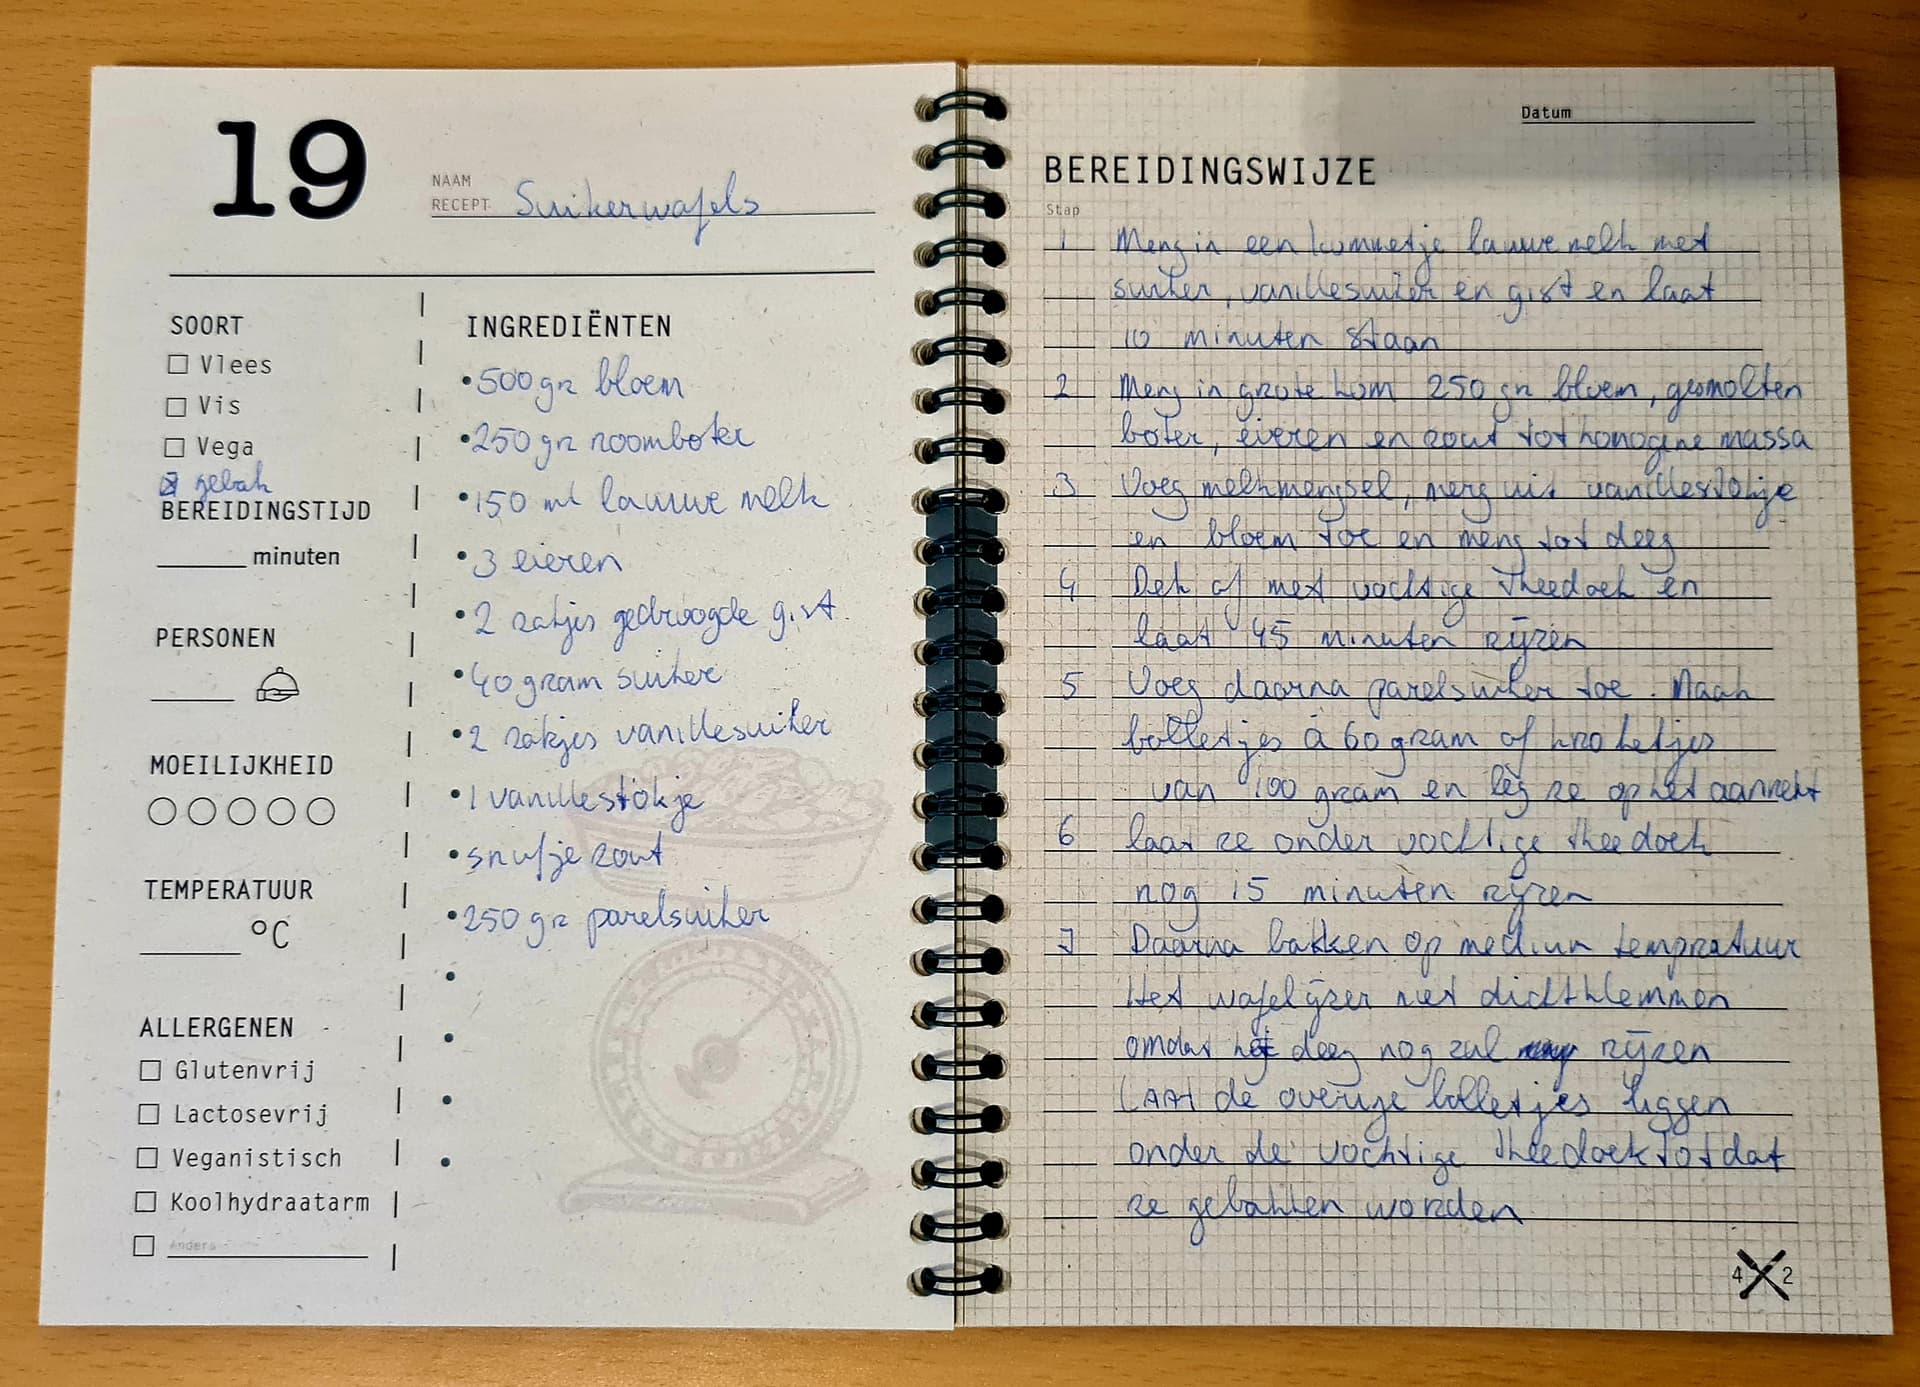 19
NAAM
RECEPT Suikerwafels
SOORT
Vlees
Vis
Vega
gebak
BEREIDINGSTIJD
minuten
PERSONEN
MOEILIJKHEID
TEMPERATUUR
°C
ALLERGENEN
Glutenvrij
Lactosevrij
Veganistisch
Koolhydraatarm
Anders
INGREDIËNTEN
• 500 gr bloem
• 250 gr roomboter
• 150 ml lauwe melk
• 3 eieren
• 2 zakjes gedroogde gist
• 40 gram suiker
• 2 zakjes vanillesuiker
• 1 vanillestokje
• snufje zout
• 250 gr parelsuiker
Datum
BEREIDINGSWIJZE
Stap
1 Meng in een kommetje lauwe melk met
suiker, vanillesuiker en gist en laat
10 minuten staan
2 Meng in grote kom 250 gr bloem, gesmolten
boter, eieren en zout tot homogene massa
3 Voeg melkmengsel, merg uit vanillestokje
en bloem toe en meng tot deeg
4 Dek af met vochtige theedoek en
laat 45 minuten rijzen
5 Voeg daarna parelsuiker toe. Maak
bolletjes à 60 gram of kroketjes
van 100 gram en leg ze op het aanrecht
6 laat ze onder vochtige theedoek
nog 15 minuten rijzen
7 Daarna bakken op medium tempratuur
Het wafelijzer niet dichtklemmen
omdat het deeg nog zal rijzen
LAAt de overige bolletjes liggen
onder de vochtige theedoek totdat
ze gebakken worden
4 2